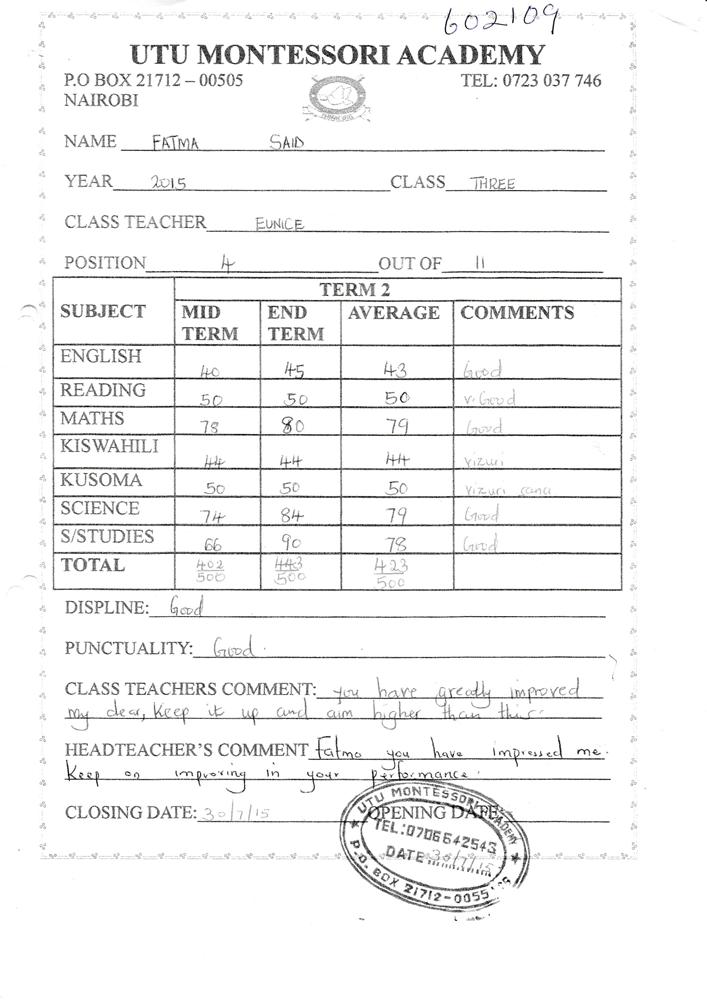 602109
UTU MONTESSORI ACADEMY
P.O BOX 21712 – 00505 TEL: 0723 037 746
NAIROBI
NAME FATMA SAID
YEAR 2015 CLASS THREE
CLASS TEACHER EUNICE
POSITION 4 OUT OF 11
TERM 2
SUBJECT MID TERM END TERM AVERAGE COMMENTS
ENGLISH 40 45 43 Good
READING 50 50 50 V. Good
MATHS 78 80 79 Good
KISWAHILI 44 44 44 Vizuri
KUSOMA 50 50 50 Vizuri sana
SCIENCE 74 84 79 Good
S/STUDIES 66 90 78 Good
TOTAL 402/500 443/500 423/500
DISPLINE: Good
PUNCTUALITY: Good.
CLASS TEACHERS COMMENT: you have greatly improved
my dear, keep it up and aim higher than this.
HEADTEACHER'S COMMENT Fatma you have impressed me.
Keep on improving in your performance.
CLOSING DATE: 30/7/15 OPENING DATE:
UTU MONTESSORI ACADEMY
TEL: 0706642543
DATE 30/7/15
P.O. BOX 21712-0055